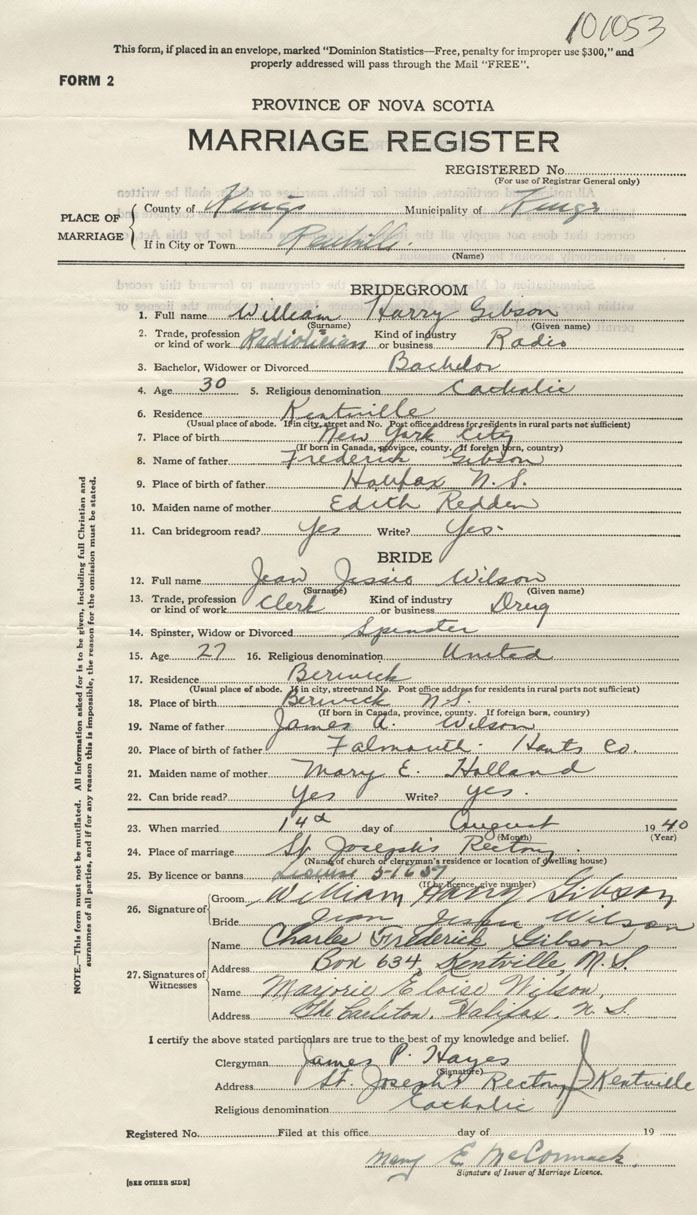 101053
This form, if placed in an envelope, marked "Dominion Statistics—Free, penalty for improper use $300," and
properly addressed will pass through the Mail "FREE".
FORM 2
PROVINCE OF NOVA SCOTIA
MARRIAGE REGISTER
REGISTERED No.
(For use of Registrar General only)
PLACE OF MARRIAGE
County of Kings Municipality of Kings
If in City or Town Kentville.
(Name)
BRIDEGROOM
1. Full name William Harry Gibson
(Surname) (Given name)
2. Trade, profession or kind of work Radiotician Kind of industry or business Radio
3. Bachelor, Widower or Divorced Bachelor
4. Age 30 5. Religious denomination Catholic
6. Residence Kentville
(Usual place of abode. If in city, street and No. Post office address for residents in rural parts not sufficient)
7. Place of birth New York City
(If born in Canada, province, county. If foreign born, country)
8. Name of father Frederick Gibson
9. Place of birth of father Halifax N.S.
10. Maiden name of mother Edith Redden
11. Can bridegroom read? Yes Write? Yes.
BRIDE
12. Full name Jean Jessie Wilson
(Surname) (Given name)
13. Trade, profession or kind of work Clerk Kind of industry or business Drug
14. Spinster, Widow or Divorced Spinster
15. Age 27 16. Religious denomination United
17. Residence Berwick
(Usual place of abode. If in city, street and No. Post office address for residents in rural parts not sufficient)
18. Place of birth Berwick N.S.
(If born in Canada, province, county. If foreign born, country)
19. Name of father James A. Wilson
20. Place of birth of father Falmouth. Hants Co.
21. Maiden name of mother Mary E. Holland
22. Can bride read? Yes Write? Yes.
23. When married 14 day of August 1940
(Month) (Year)
24. Place of marriage St. Joseph's Rectory
(Name of church of clergyman's residence or location of dwelling house)
25. By licence or banns License 51657
(If by licence, give number)
26. Signature of
Groom William Harry Gibson
Bride Jean Jessie Wilson
27. Signatures of Witnesses
Name Charles Frederick Gibson
Address Box 634, Kentville, N.S.
Name Marjorie Eloise Wilson,
Address The Carleton, Halifax, N.S.
I certify the above stated particulars are true to the best of my knowledge and belief.
Clergyman James P. Hayes
(Signature)
Address St. Joseph's Rectory Kentville
Religious denomination Catholic
Registered No. Filed at this office day of 19
Mary E McCormack.
Signature of Issuer of Marriage Licence.
[SEE OTHER SIDE]
NOTE.—This form must not be mutilated. All information asked for is to be given, including full Christian and
surnames of all parties, and if for any reason this is impossible, the reason for the omission must be stated.